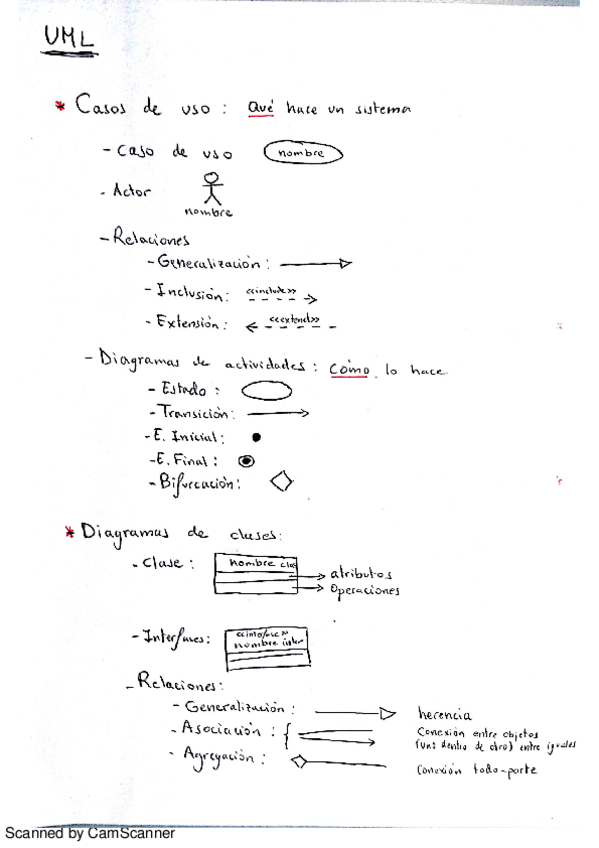 UML
* Casos de uso: Qué hace un sistema
- Caso de uso nombre
- Actor
nombre
- Relaciones
- Generalización:
- Inclusión: <<include>>
- Extensión: <<extend>>
- Diagramas de actividades: Cómo lo hace
- Estado:
- Transición:
- E. Inicial:
- E. Final:
- Bifurcación:
* Diagramas de clases:
- Clase: nombre clas
atributos
Operaciones
- Interfases: <<interfase>>
nombre inter
- Relaciones:
- Generalización: herencia
- Asociación: Conexión entre objetos
(uno dentro de otro) entre iguales
- Agregación: Conexión todo-parte
Scanned by CamScanner